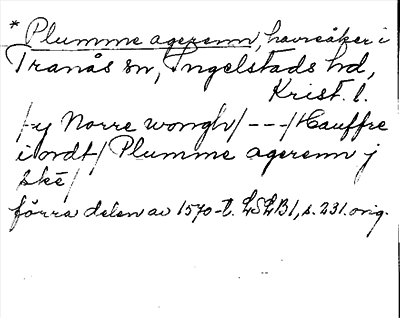 * Plumme agerenn, havreåker i
Tranås sn, Ingelstads hd,
Krist. l.
/y Norre wongh/ - - - /Hauffre
iordt/ Plumme agerenn j
skè/
förra delen av 1570-t. LSLB1, s. 231. orig.